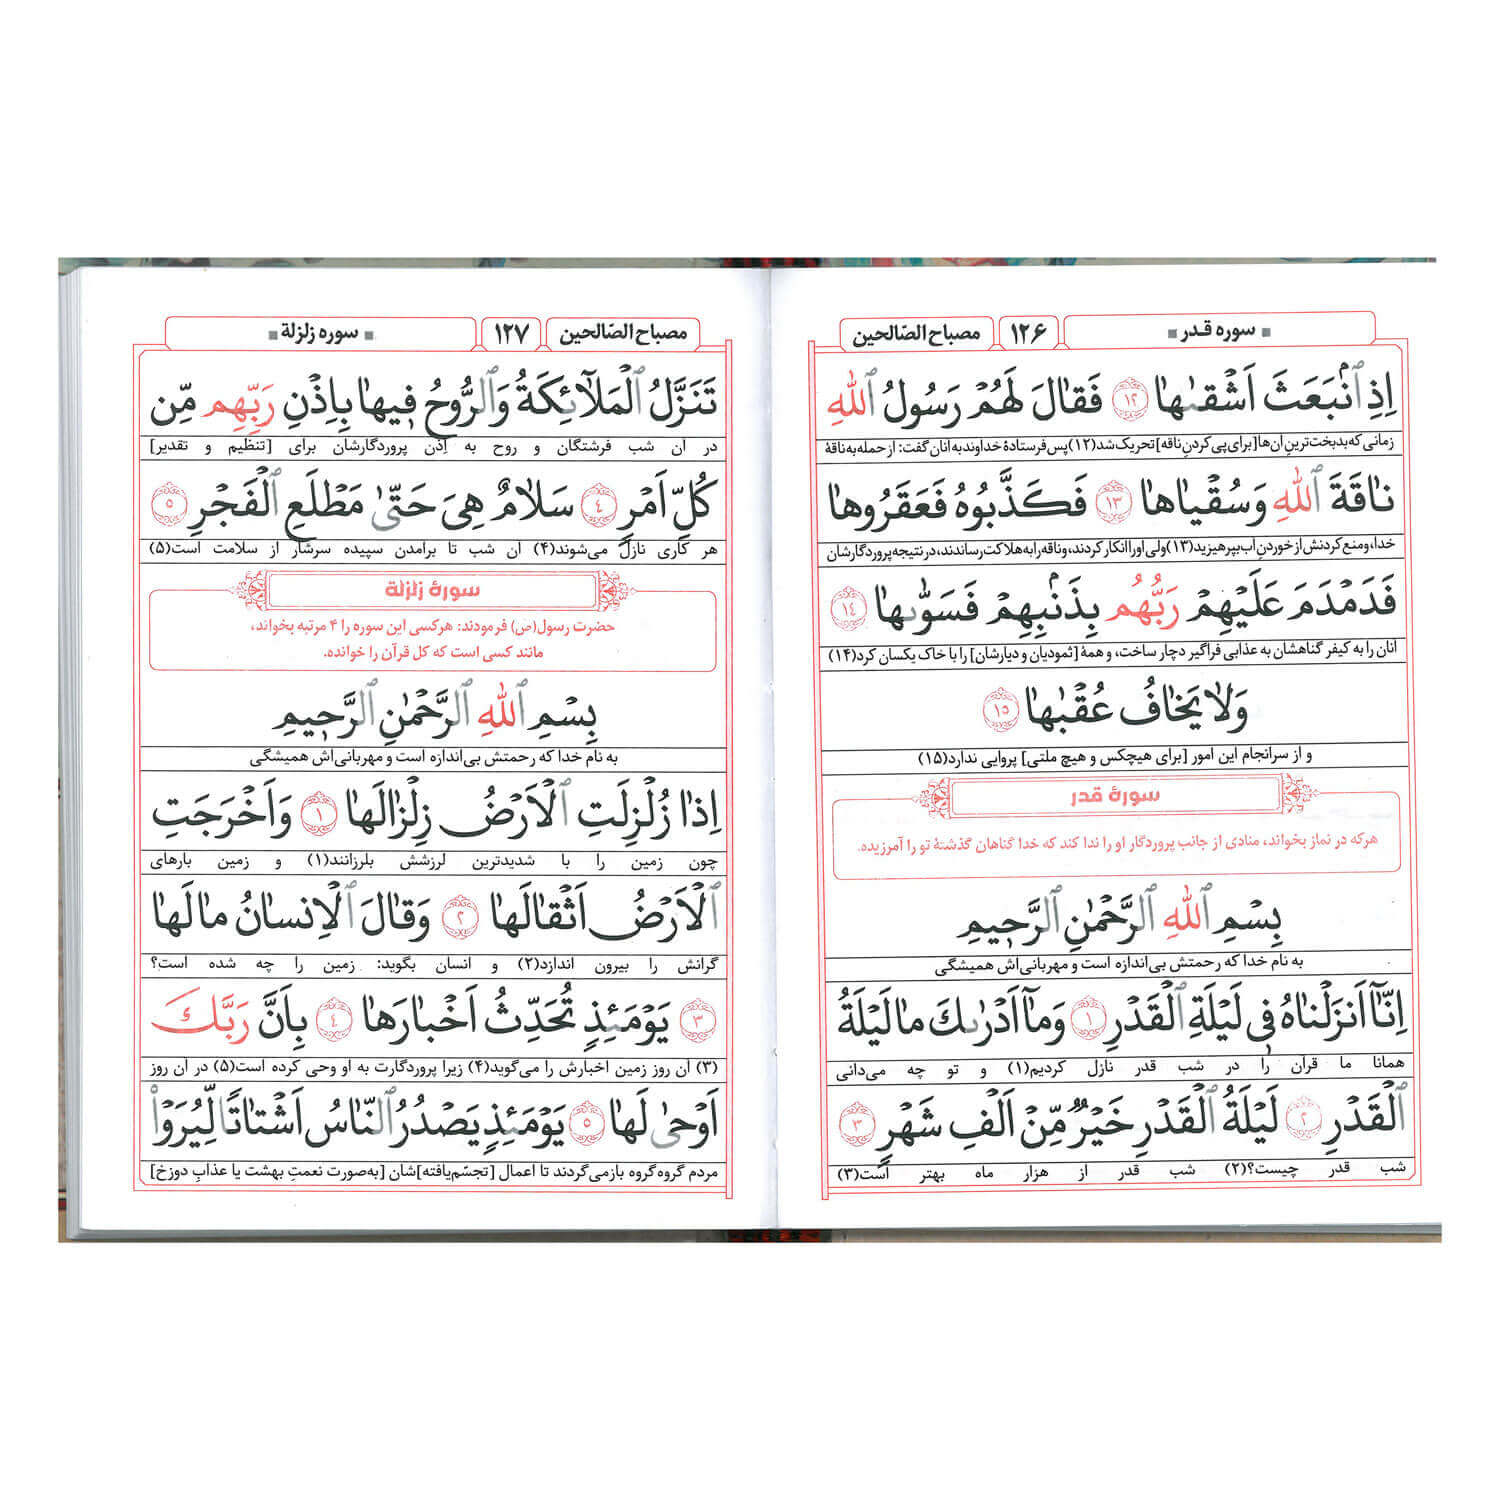 سوره قدر
۱۲۶
مصباح الصّالحین
اِذِ ٱنْۢبَعَثَ اَشْقىٰها ١٢ فَقالَ لَهُمْ رَسُولُ ٱللهِ
زمانی که بدبخت‌ترینِ آن‌ها [برای پی کردنِ ناقه] تحریک شد(۱۲) پس فرستادهٔ خداوند به آنان گفت: از حمله به ناقهٔ
ناقَةَ ٱللهِ وَسُقْياها ١٣ فَكَذَّبُوهُ فَعَقَرُوها
خدا، و منع کردنش از خوردنِ آب بپرهیزید(۱۳) ولی او را انکار کردند، و ناقه را به هلاکت رساندند، در نتیجه پروردگارشان
فَدَمْدَمَ عَلَيْهِمْ رَبُّهُم بِذَنْۢبِهِمْ فَسَوّٰىها ١٤
آنان را به کیفر گناهشان به عذابی فراگیر دچار ساخت، و همهٔ [ثمودیان و دیارشان] را با خاک یکسان کرد(۱۴)
وَلا يَخافُ عُقْبٰها ١٥
و از سرانجام این امور [برای هیچکس و هیچ ملتی] پروایی ندارد(۱۵)
سورهٔ قدر
هرکه در نماز بخواند، منادی از جانب پروردگار او را ندا کند که خدا گناهان گذشتهٔ تو را آمرزیده.
بِسْمِ ٱللهِ ٱلرَّحْمٰنِ ٱلرَّحِيمِ
به نام خدا که رحمتش بی‌اندازه است و مهربانی‌اش همیشگی
اِنَّآ اَنزَلْناهُ فِى لَيْلَةِ ٱلْقَدْرِ ١ وَمآ اَدْرىٰكَ ما لَيْلَةُ
همانا ما قرآن را در شب قدر نازل کردیم(۱) و تو چه می‌دانی
ٱلْقَدْرِ ٢ لَيْلَةُ ٱلْقَدْرِ خَيْرٌ مِّنْ اَلْفِ شَهْرٍ ٣
شب قدر چیست؟(۲) شب قدر از هزار ماه بهتر است(۳)
مصباح الصّالحین
۱۲۷
سوره زلزلة
تَنَزَّلُ ٱلْمَلآئِكَةُ وَٱلرُّوحُ فِيها بِاِذْنِ رَبِّهِم مِّن
در آن شب فرشتگان و روح به اِذن پروردگارشان برای [تنظیم و تقدیر]
كُلِّ اَمْرٍ ٤ سَلامٌ هِىَ حَتّىٰ مَطْلَعِ ٱلْفَجْرِ ٥
هر کاری نازل می‌شوند(۴) آن شب تا برآمدن سپیده سرشار از سلامت است(۵)
سورهٔ زلزلة
حضرت رسول(ص) فرمودند: هرکسی این سوره را ۴ مرتبه بخواند،
مانند کسی است که کل قرآن را خوانده.
بِسْمِ ٱللهِ ٱلرَّحْمٰنِ ٱلرَّحِيمِ
به نام خدا که رحمتش بی‌اندازه است و مهربانی‌اش همیشگی
اِذا زُلْزِلَتِ ٱلْاَرْضُ زِلْزالَها ١ وَاَخْرَجَتِ
چون زمین را با شدیدترین لرزشش بلرزانند(۱) و زمین بارهای
ٱلْاَرْضُ اَثْقالَها ٢ وَقالَ ٱلْاِنْسانُ ما لَها
گرانش را بیرون اندازد(۲) و انسان بگوید: زمین را چه شده است؟
٣ يَوْمَئِذٍ تُحَدِّثُ اَخْبارَها ٤ بِاَنَّ رَبَّكَ
(۳) آن روز زمین اخبارش را می‌گوید(۴) زیرا پروردگارت به او وحی کرده است(۵) در آن روز
اَوْحىٰ لَها ٥ يَوْمَئِذٍ يَصْدُرُ ٱلنّاسُ اَشْتاتًا لِّيُرَوْا
مردم گروه‌گروه بازمی‌گردند تا اعمال [تجسّم‌یافته]شان [به‌صورت نعمتِ بهشت یا عذاب دوزخ]